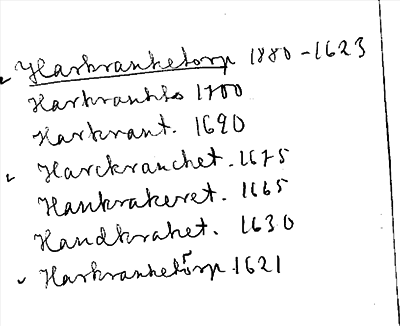 Harkranketorp 1880-1623
Harkrankla 1700
Harkrant. 1690
Harckranchet. 1675
Hankrakeret. 1665
Handkraket. 1630
Harkranketorp. 1621